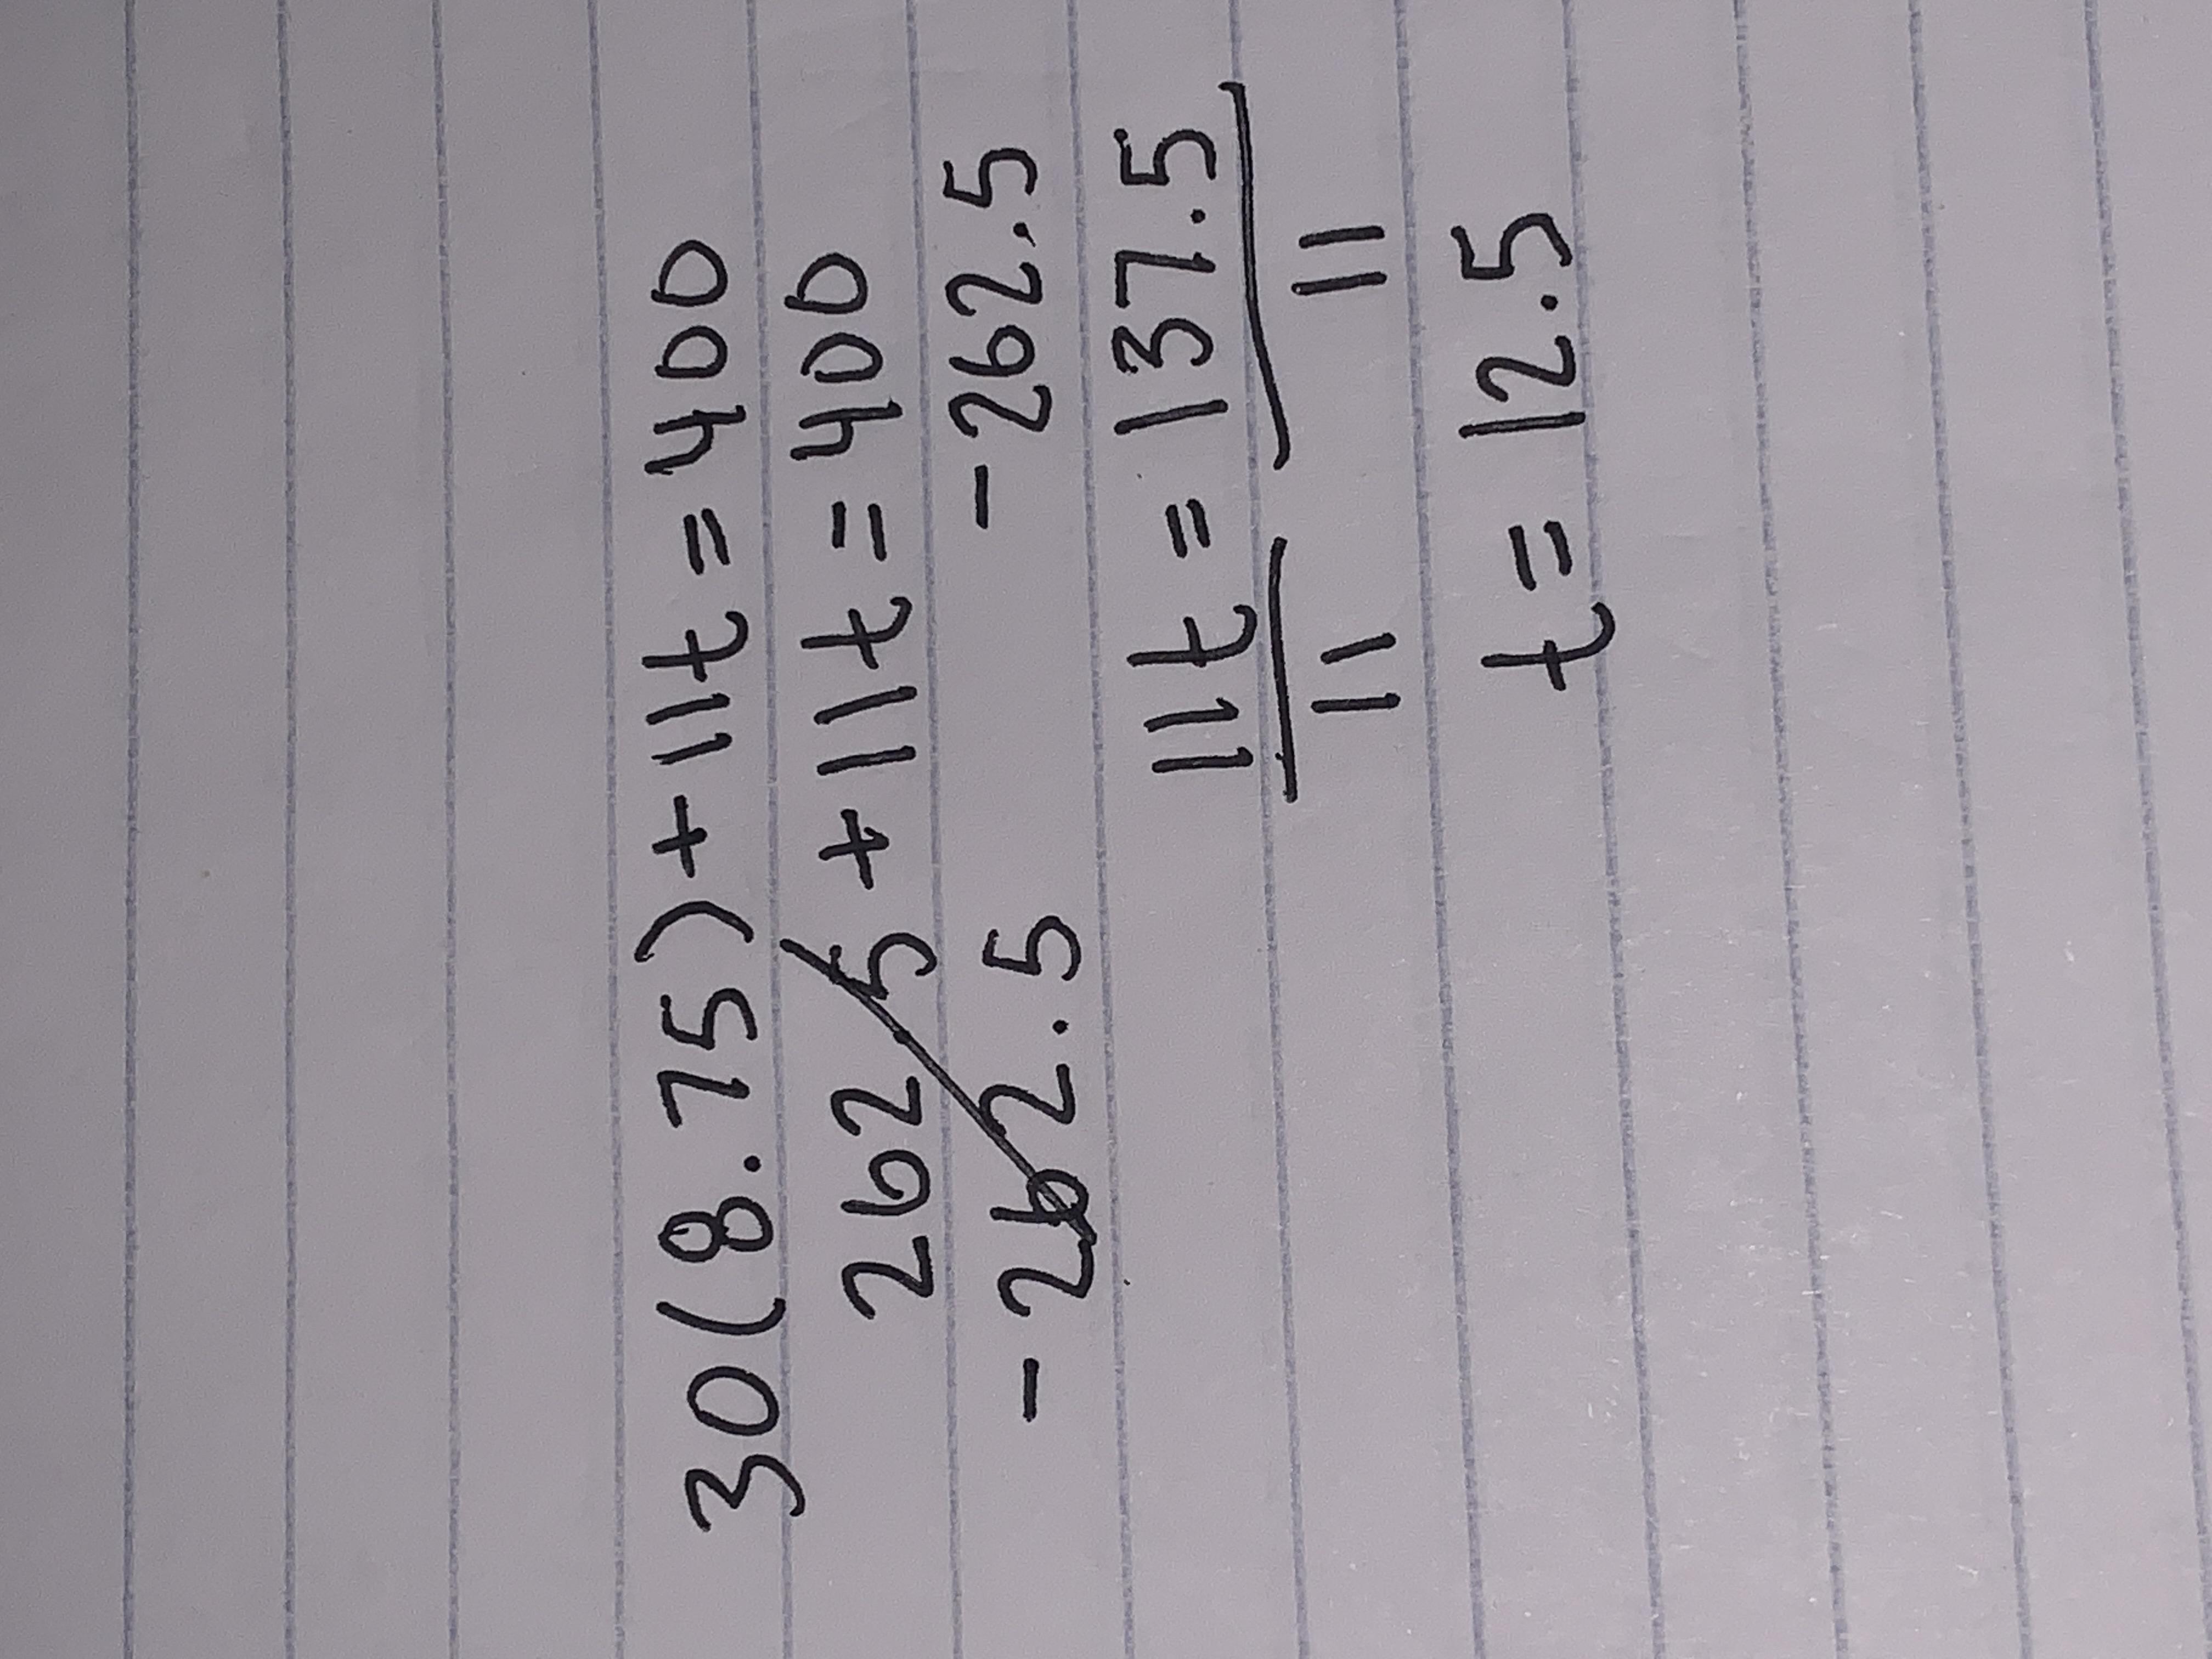 30(8.75)+11t=400
262.5+11t=400
-262.5 -262.5
11t=137.5
11 11
t=12.5